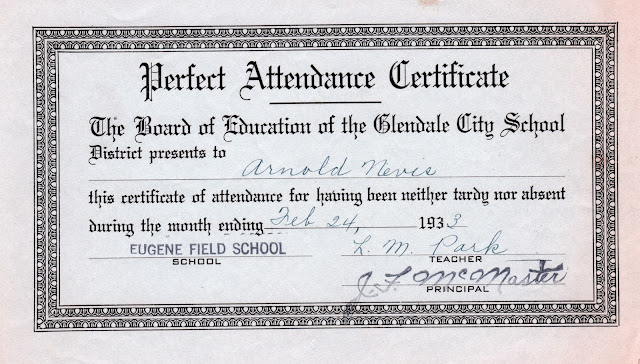 Perfect Attendance Certificate
The Board of Education of the Glendale City School
District presents to Arnold Nevis
this certificate of attendance for having been neither tardy nor absent
during the month ending Feb 24, 1933
EUGENE FIELD SCHOOL L. M. Park
SCHOOL TEACHER
J. F. McMaster
PRINCIPAL